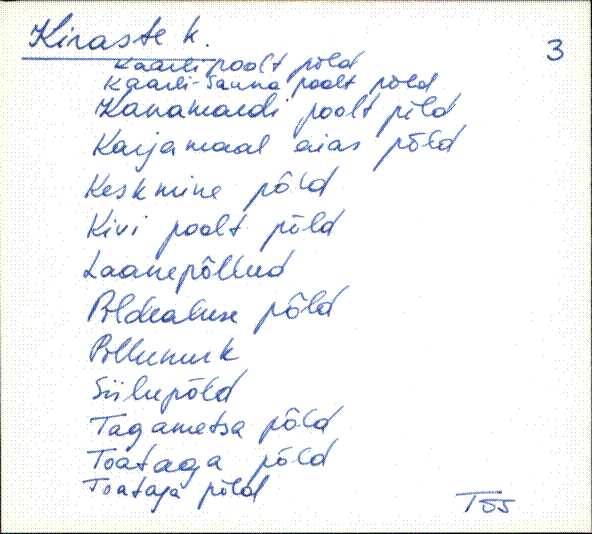 Kiraste k.
3
Kaarli poolt põld
Kaarli-Sauna poolt põld
Kanamardi poolt põld
Karjamaal aias põld
Keskmine põld
Kivi poolt põld
Laanepõllud
Põldealuse põld
Põllunurk
Siilupõld
Tagametsa põld
Toataga põld
Toataja põld
Tõs